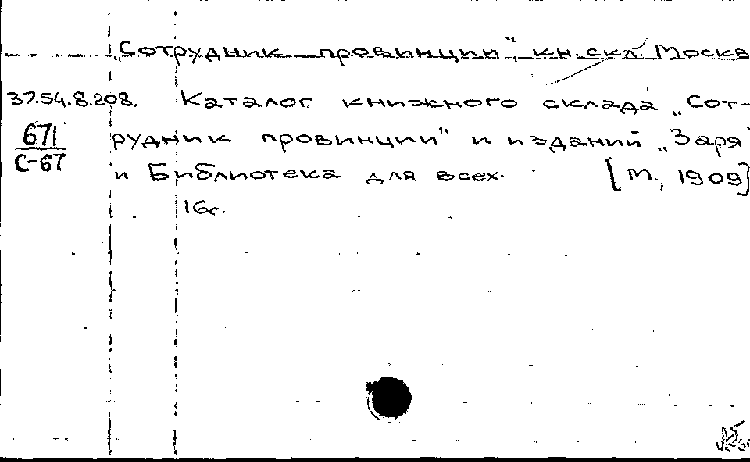 „Сотрудник провинции", кн. скл. Москв
37.54.8.208. Каталог книжного склада „Сот-
671 рудник провинции" и изданий „Заря
С-67 и Библиотека для всех. [М., 1909]
16с.